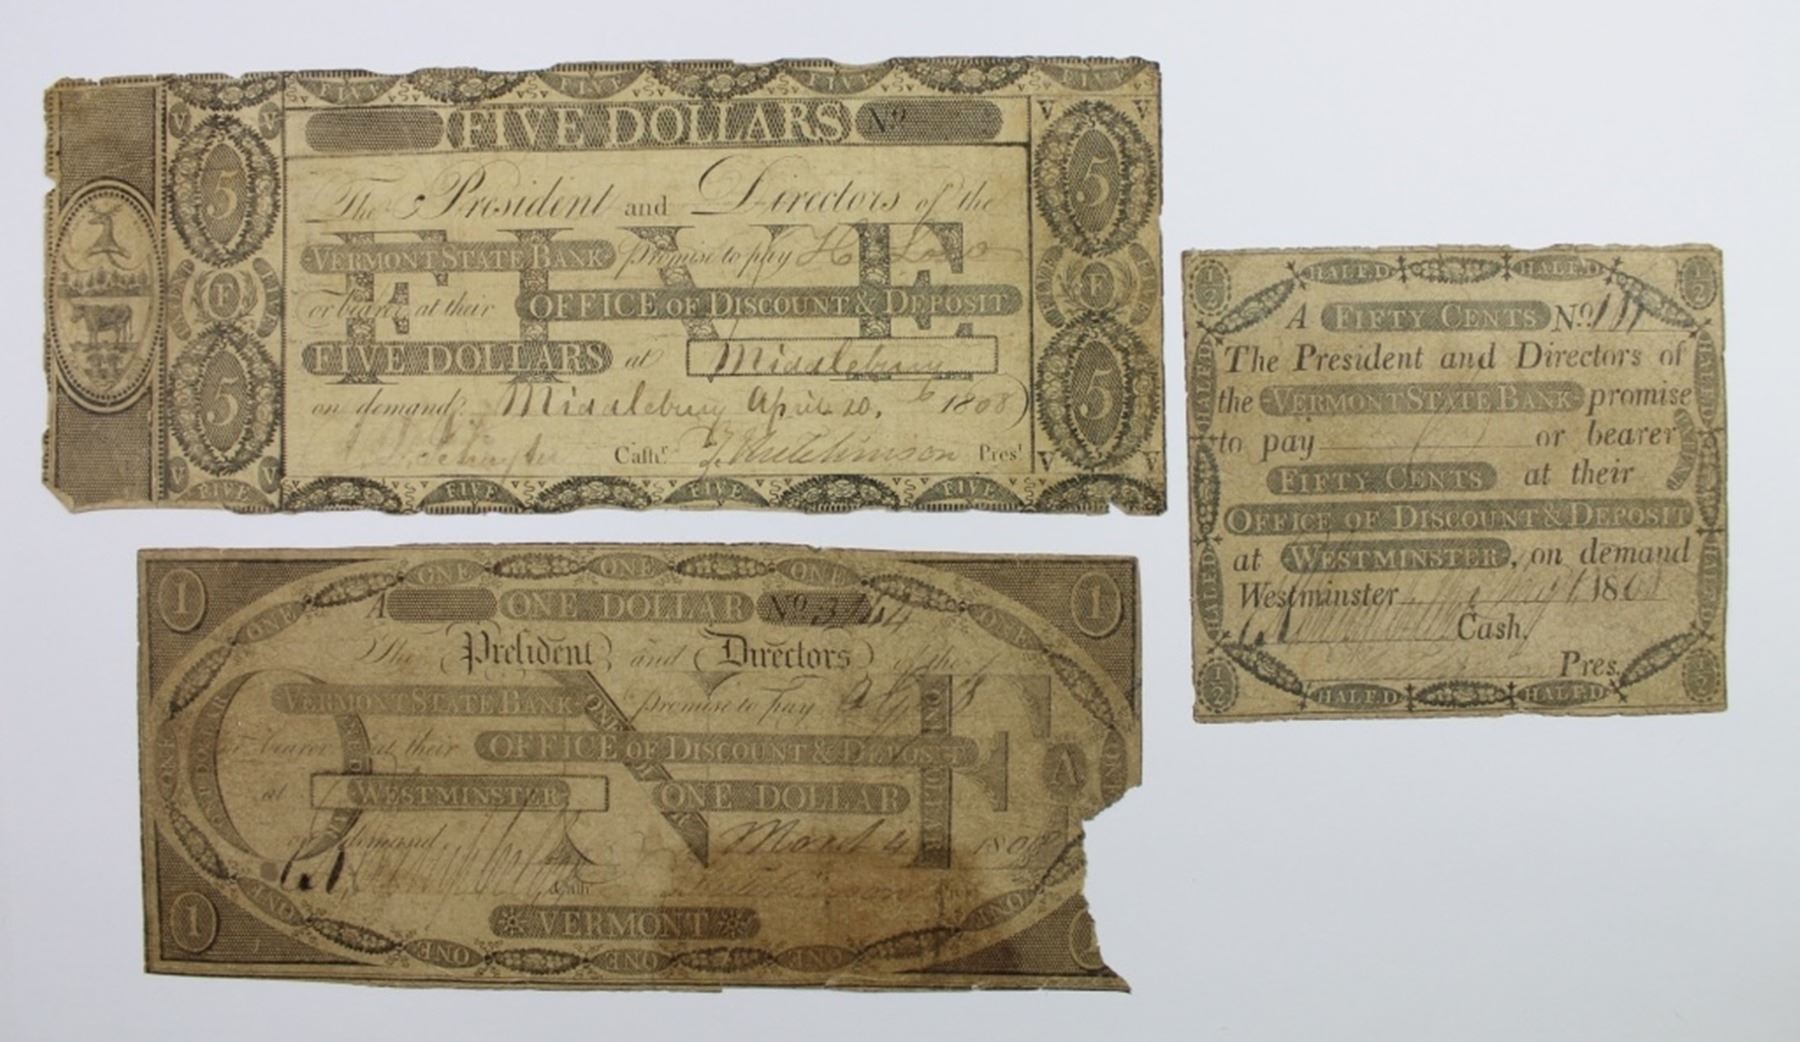 FIVE FIVE FIVE FIVE
V V FIVE DOLLARS No V V
5 The President and Directors of the 5
FIVE
VERMONT STATE BANK Promise to pay
F or bearer at their OFFICE OF DISCOUNT & DEPOSIT F
FIVE DOLLARS at Middlebury
5 on demand. Middlebury April 20, 1808 5
Cashr. Hutchinson Prest
V V FIVE FIVE FIVE FIVE V V
1 ONE ONE ONE 1
ONE A ONE DOLLAR No 3144 ONE
The President and Directors of the
ONE
VERMONT STATE BANK promise to pay
or bearer at their OFFICE OF DISCOUNT & DEPOSIT A
at WESTMINSTER ONE DOLLAR
on demand March 4 1808
Cashr Hutchinson
1 VERMONT
ONE ONE ONE ONE ONE
1/2 HALF D HALF D 1/2
A FIFTY CENTS No
The President and Directors of
the VERMONT STATE BANK promise
to pay or bearer
FIFTY CENTS at their
OFFICE OF DISCOUNT & DEPOSIT
at WESTMINSTER, on demand
Westminster 180
Cash.
Pres.
1/2 HALF D HALF D 1/2